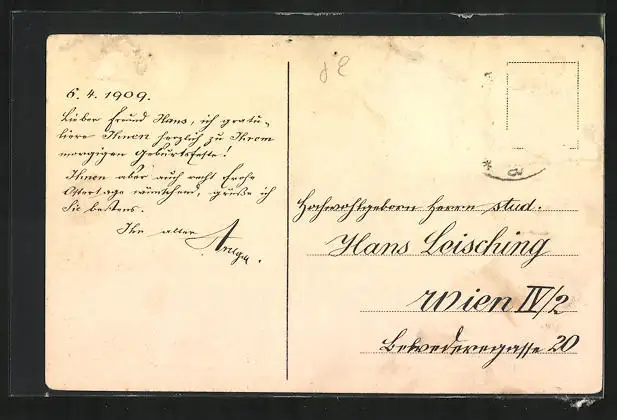 6. 4. 1909.
Lieber Freund Hans, ich gratu-
liere Ihnen herzlich zu Ihrem
morgigen Geburtsfeste!
Ihnen aber auch recht frohe
Ostertage wünschend, grüße ich
Sie bestens.
Ihr alter
Hochwohlgeborn Herrn stud.
Hans Leisching
Wien IV/2
Belvederegasse 20